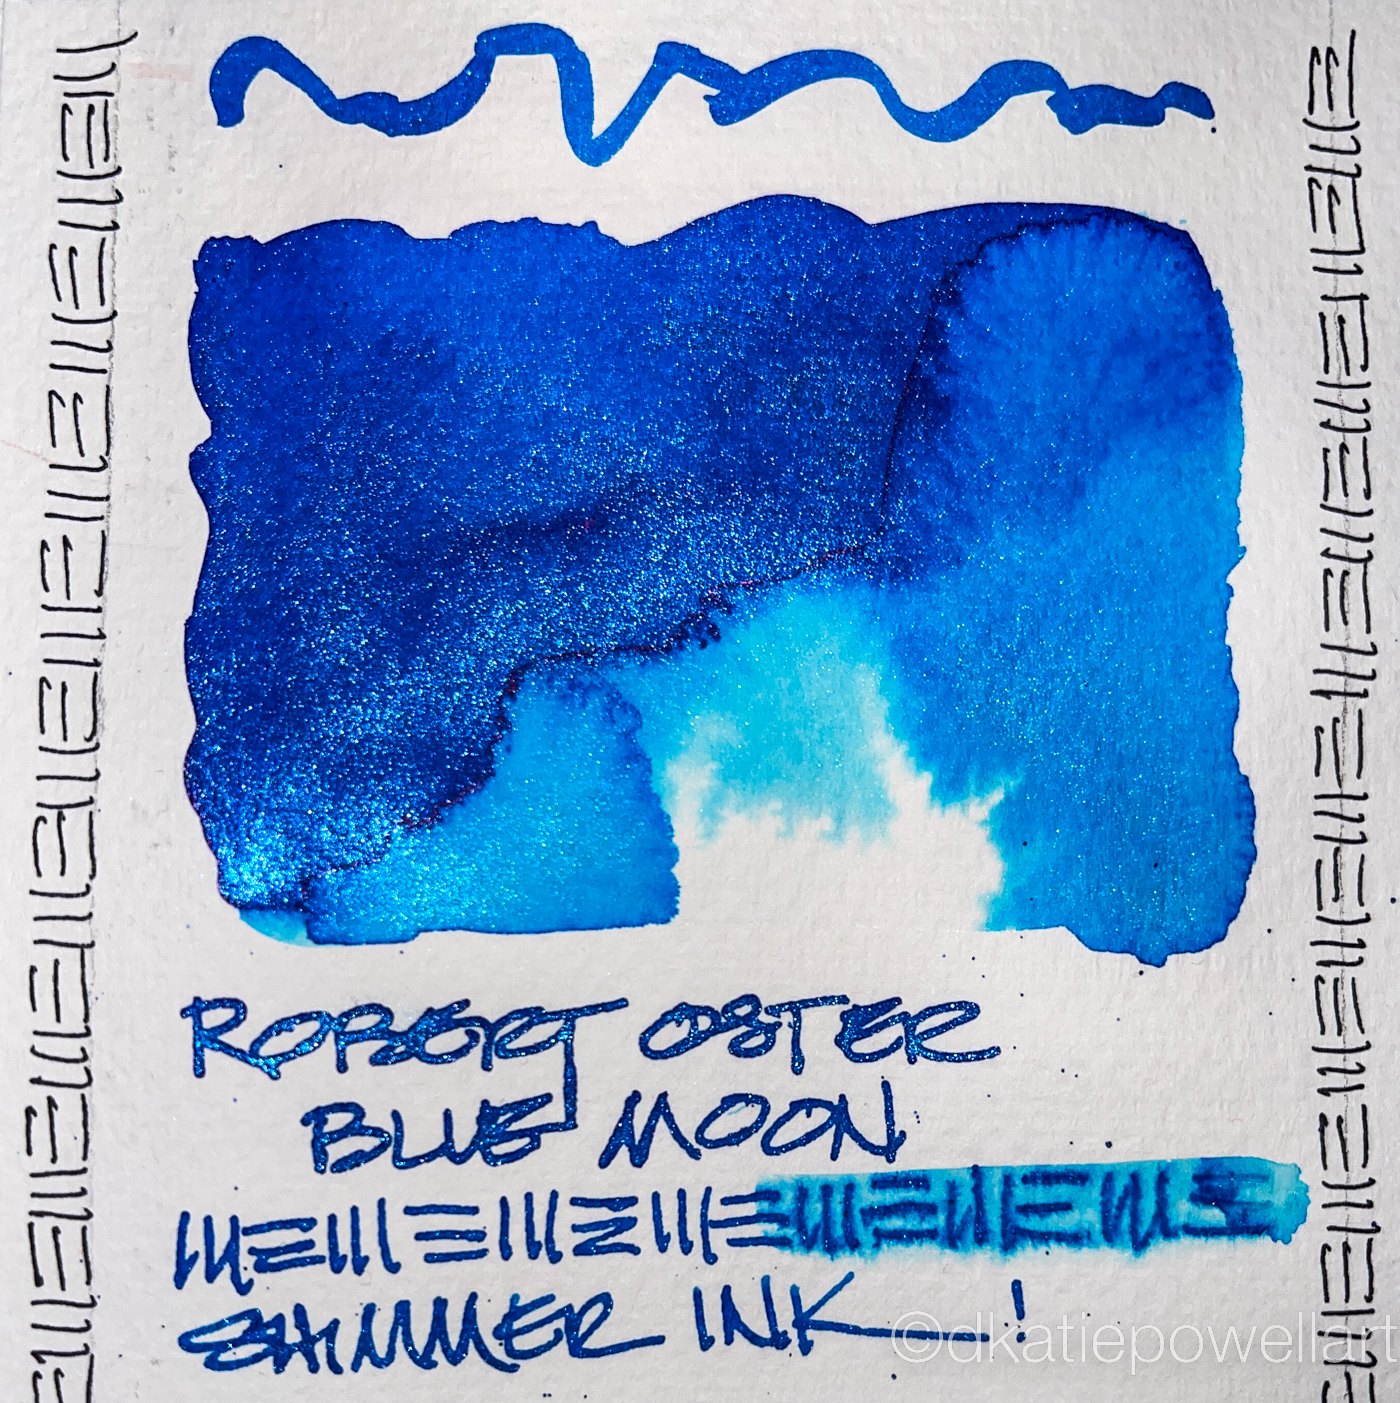 ROBERT OSTER
BLUE MOON
SHIMMER INK !
©dkatiepowellart